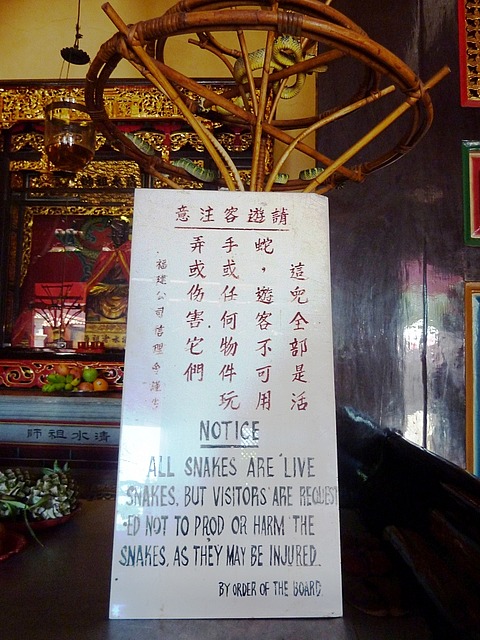 請遊客注意
這兒全部是活
蛇，遊客不可用
手或任何物件玩
弄或伤害它們
福建公司信理會謹告
NOTICE
ALL SNAKES ARE LIVE
SNAKES, BUT VISITORS ARE REQUEST
ED NOT TO PROD OR HARM THE
SNAKES, AS THEY MAY BE INJURED.
BY ORDER OF THE BOARD.
清水祖師